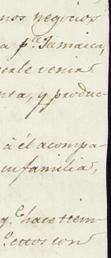 nos negocios
a p.ª Jamaica,
cale venia
nta, y produc-
a él acompa-
su familia,
q.e hace tiem-
estos con